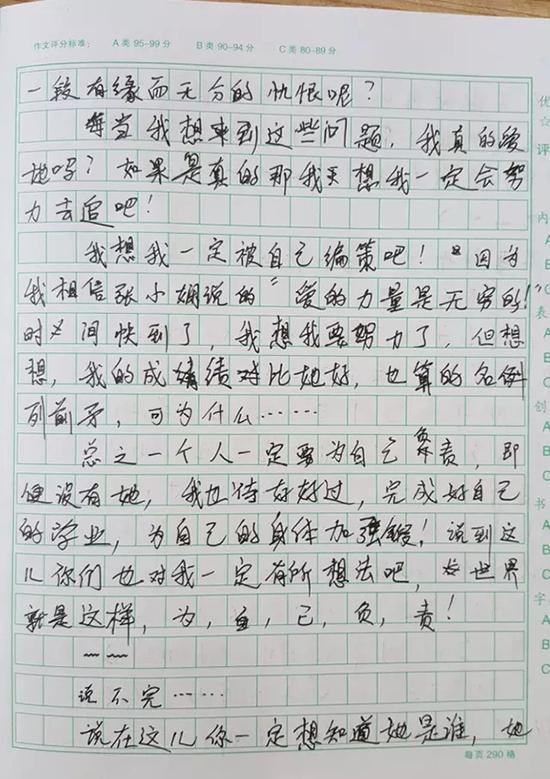 作文评分标准： A类 95-99分 B类 90-94分 C类 80-89分
一段有缘而无分的仇恨呢？
每当我想来到这些问题，我真的爱
她吗？如果是真的那我天想我一定会努
力去追吧！
我想我一定被自己编策吧！“因为
我相信张小娴说的“爱的力量是无穷的！”
时间快到了，我想我要努力了，但想
想，我的成绩对比她好，也算的名例
列前矛，可为什么……
总之一个人一定要为自己负责，即
便没有她，我也待好好过，完成好自己
的学业，为自己的身体加强锻！说到这
儿你们也对我一定有所想法吧，世界
就是这样，为，自，己，负，责！
~~
说不完……
说在这儿你一定想知道她是谁，她
每页290格
优
☆
评
内
A
B
C
表
A
B
C
创
A
B
C
书
A
字
A
B
C